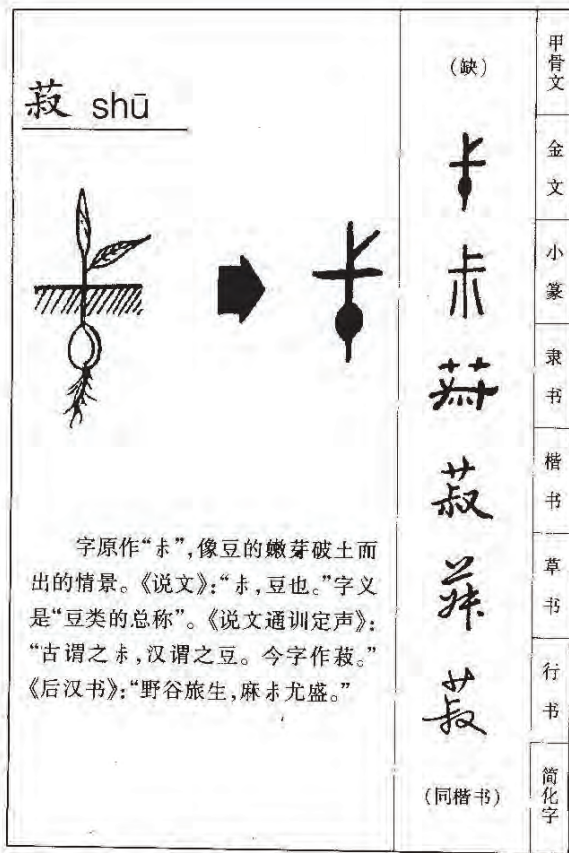 菽 shū
字原作“尗”,像豆的嫩芽破土而
出的情景。《说文》:“尗,豆也。”字义
是“豆类的总称”。《说文通训定声》:
“古谓之尗,汉谓之豆。今字作菽。”
《后汉书》:“野谷旅生,麻尗尤盛。”
(缺)
尗
尗
菽
菽
菽
菽
(同楷书)
甲骨文
金文
小篆
隶书
楷书
草书
行书
简化字